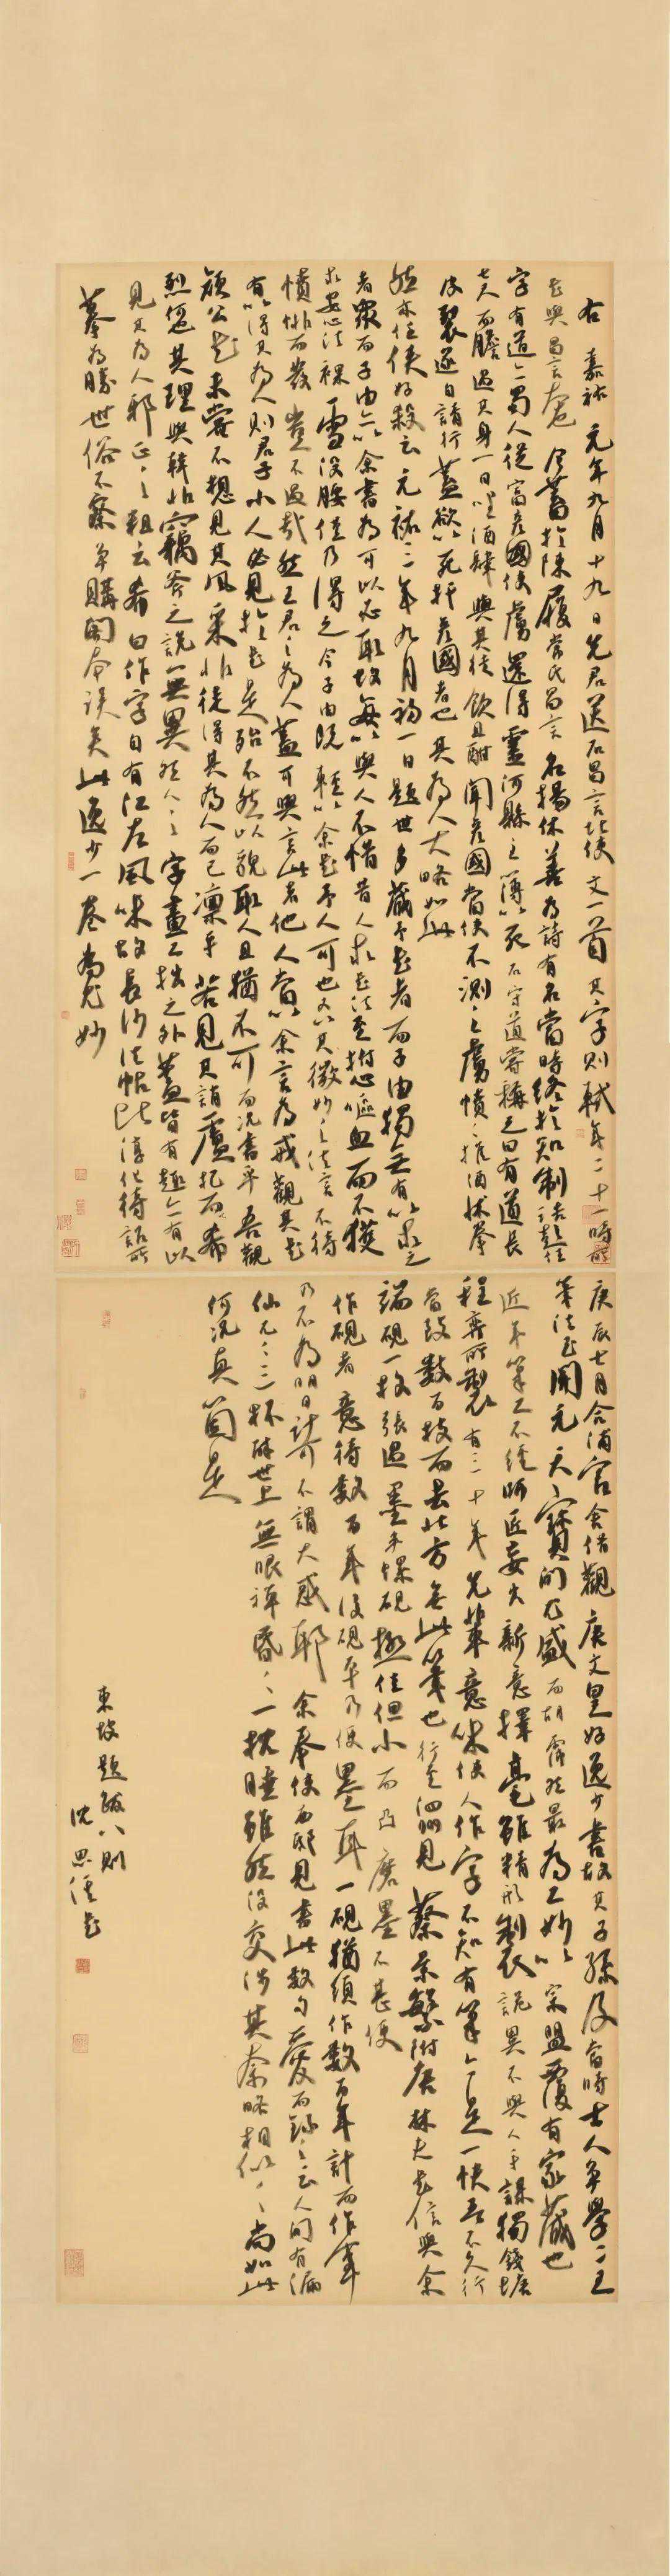 右嘉祐元年九月十九日先君送石昌言北使文一首其字則軾年二十一時所
書與昌言本也今蓄於陳履常氏昌言名揚休善為詩有名當時終於知制誥彭任
字有道亦蜀人從富彥國使虜還得靈河縣主簿以死石守道嘗稱之曰有道長
七尺而膽過其身一日坐酒肆與其徒飲且酣聞彥國當使不測之虜憤憤推酒床拳
皮裂遂自請行蓋欲以死扞彥國者也其為人大略如此
然亦任俠好殺云元祐三年九月初一日題世多藏予書者而子由獨無有以求之
者眾而子由亦以余書為可以必取故每以與人不惜昔人求書法至拊心嘔血而不獲
求安心法裸雪沒腰僅乃得之今子由既輕以余書予人可也又以其微妙之法言不待
憤悱而發豈不過哉然王君之為人蓋可與言此者他人當以余言為戒觀其書
有以得其為人則君子小人必見於書是殆不然以貌取人且猶不可而況書乎吾觀
顏公書未嘗不想見其風采非徒得其為人而已凜乎若見其誚盧杞而叱希
烈何也其理與韓非竊斧之說無異然人之字畫工拙之外蓋皆有趣亦有以
見其為人邪正之粗云希白作字自有江左風味故長沙法帖比淳化待詔所
摹為勝世俗不察爭購閣本誤矣此逸少一卷為尤妙
庚辰七月合浦官舍借觀唐文皇好逸少書故其子孫及當時士人爭學二王
筆法至開元天寶間尤盛而胡霈然最為工妙以宗盟覆有家藏也
近年筆工不經師匠妄出新意擇毫雖精形制詭異不與人手謀獨錢塘
程奕所製有三十年先輩意味使人作字不知有筆亦是一快吾不久行
當致數百枝而去北方無此筆也行至泗見蔡景繁附唐林夫書信與余
端硯一枚張遇墨半螺硯極佳但小而凸磨墨不甚便
作硯者意待數百年後硯平乃便墨耳一硯猶須作數百年計而作事
乃不為明日計可不謂大惑耶余奉使西邸見書此數句愛而錄之云人間有漏
仙兀兀三杯醉世上無眼禪昏昏一枕睡雖然沒交涉其奈略相似相似尚如此
何況真箇是
東坡題跋八則
沈思澄書